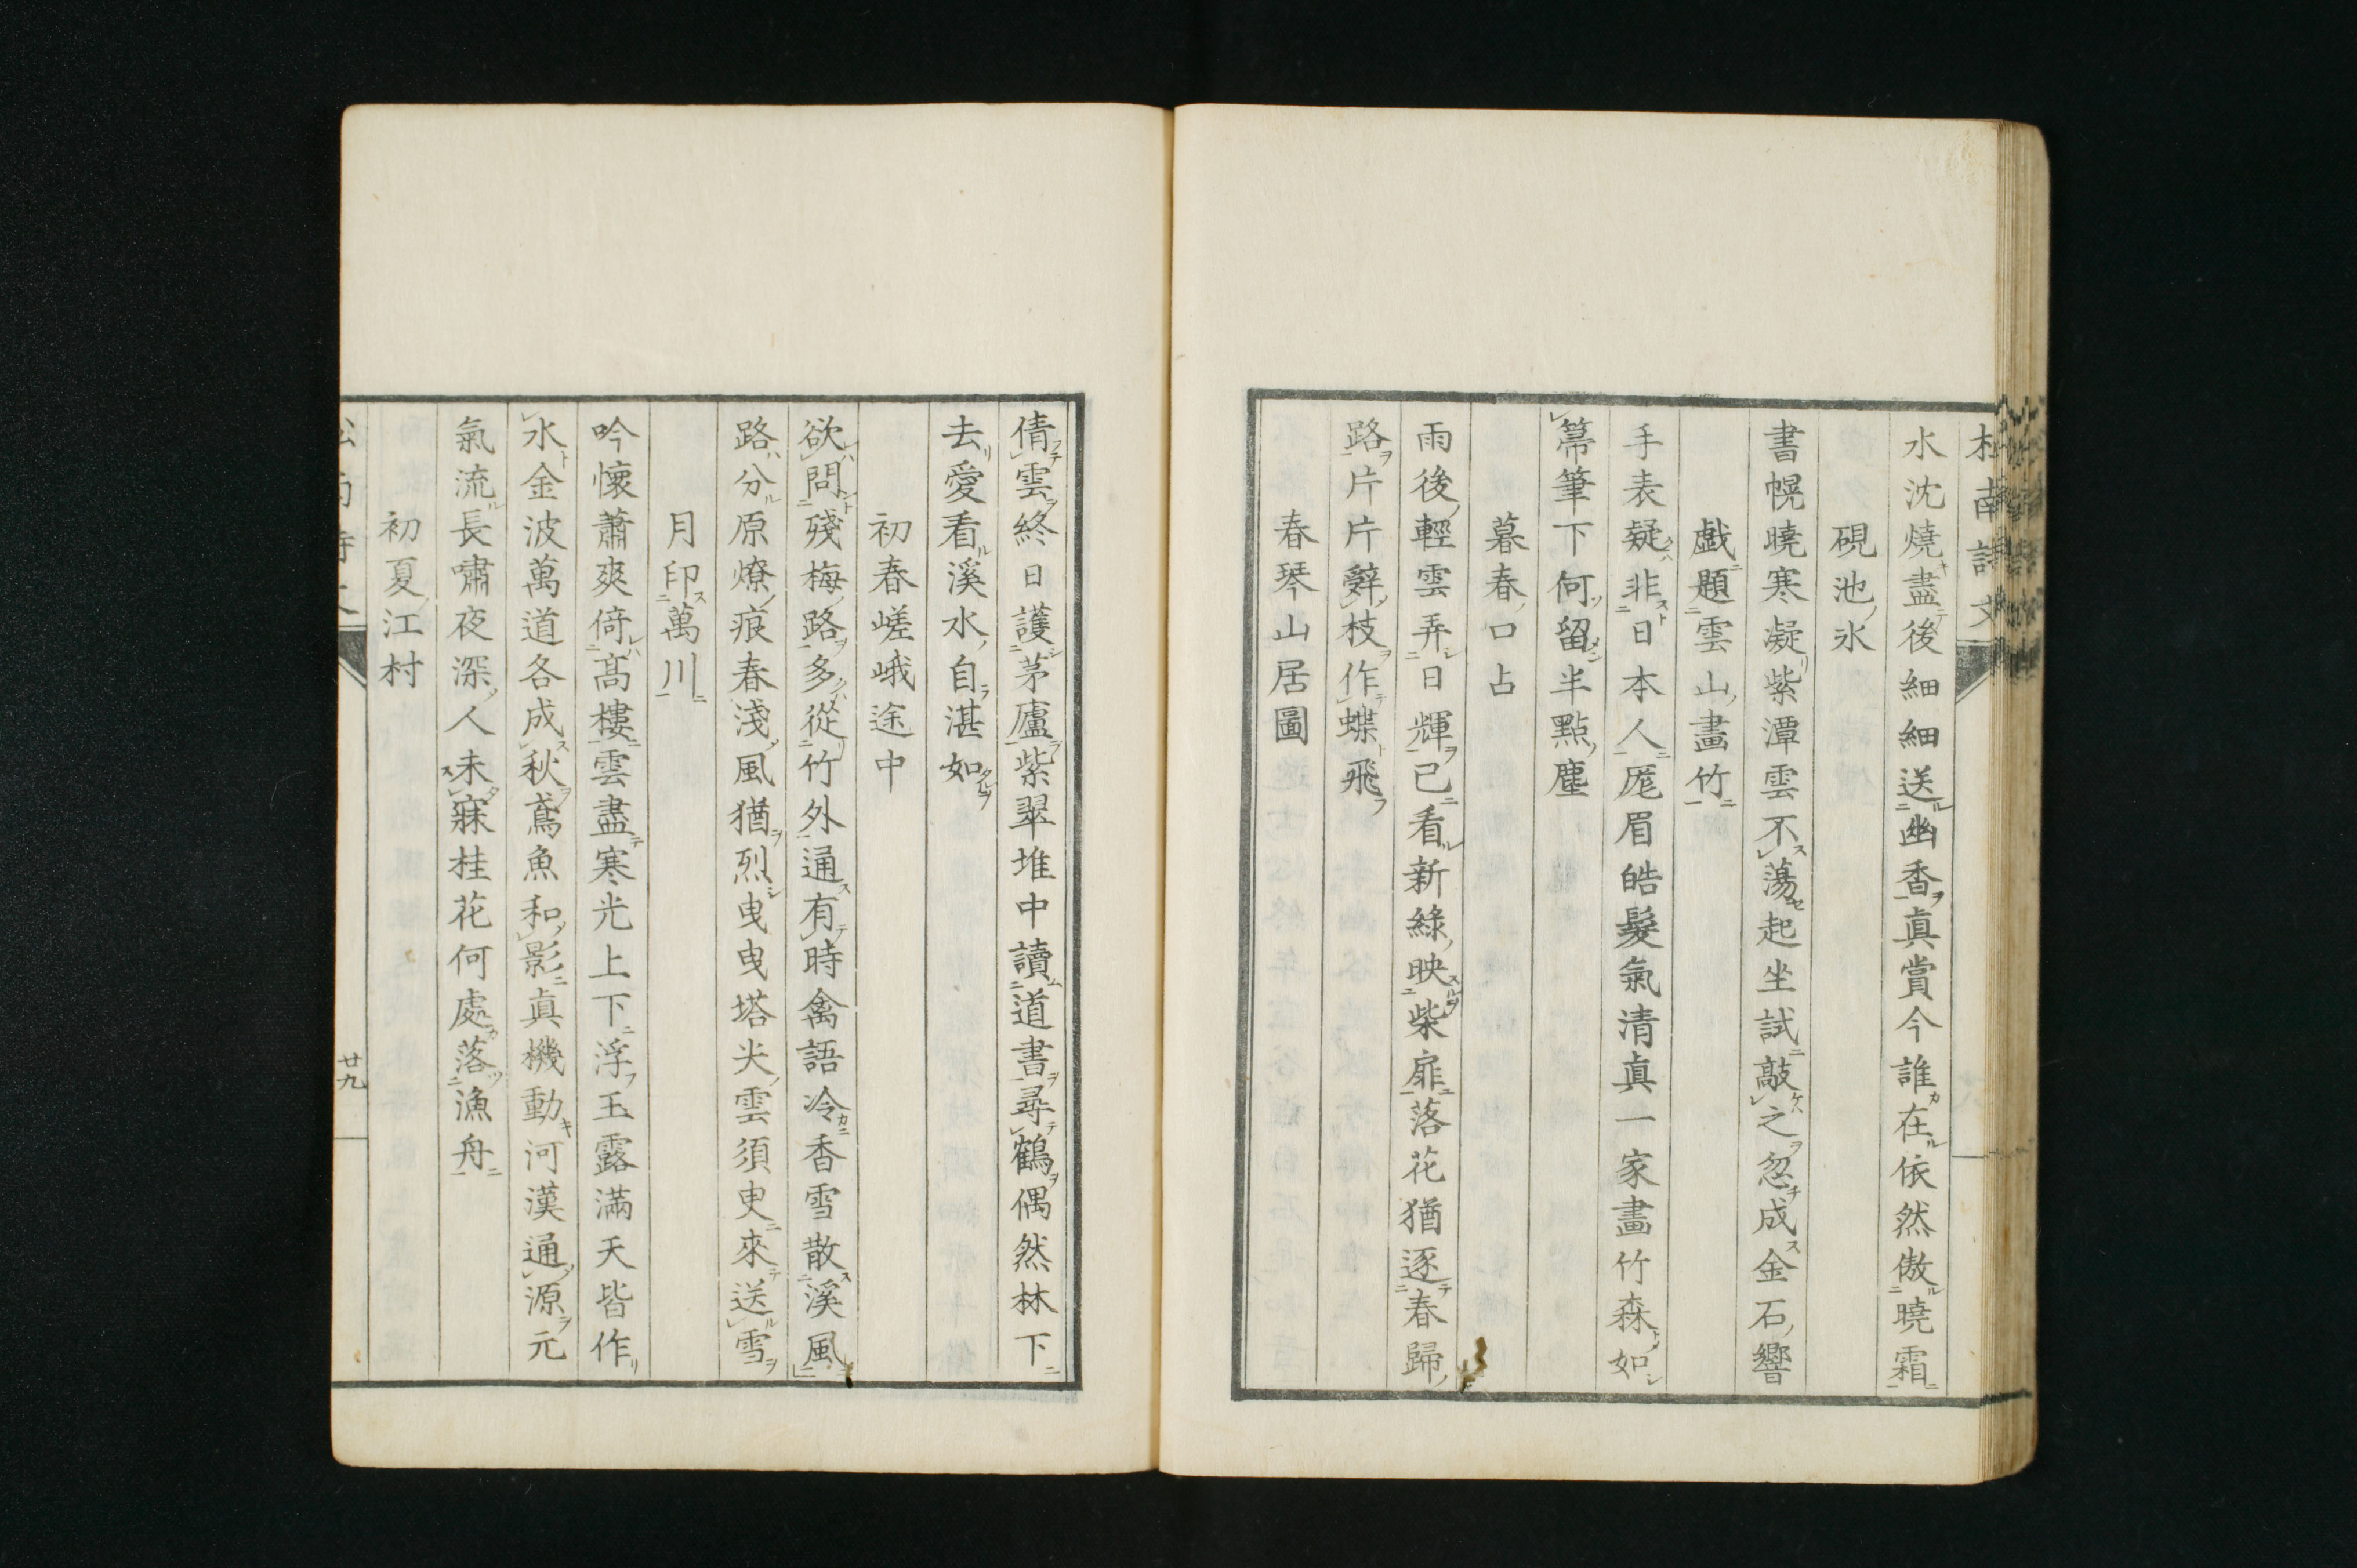 南詩文
水沈燒盡後細細送幽香眞賞今誰在依然傲曉霜
硯池氷
書幌曉寒凝紫潭雲不蕩起坐試敲之忽成金石響
戲題雲山畫竹
手表疑非日本人厖眉皓髮氣清眞一家畫竹森如
箒筆下何留半點塵
暮春口占
雨後輕雲弄日輝已看新綠映柴扉落花猶逐春歸
路片片辭枝作蝶飛
春琴山居圖
倩雲終日護茅廬紫翠堆中讀道書尋鶴偶然林下
去愛看溪水自湛如
初春嵯峨途中
欲問殘梅路多從竹外通有時禽語冷香雪散溪風
路分原燎痕春淺風猶烈曳曳塔尖雲須臾來送雪
月印萬川
吟懷蕭爽倚髙樓雲盡寒光上下浮玉露滿天皆作
水金波萬道各成秋鳶魚和影眞機動河漢通源元
氣流長嘯夜深人未寐桂花何處落漁舟
初夏江村
廿九